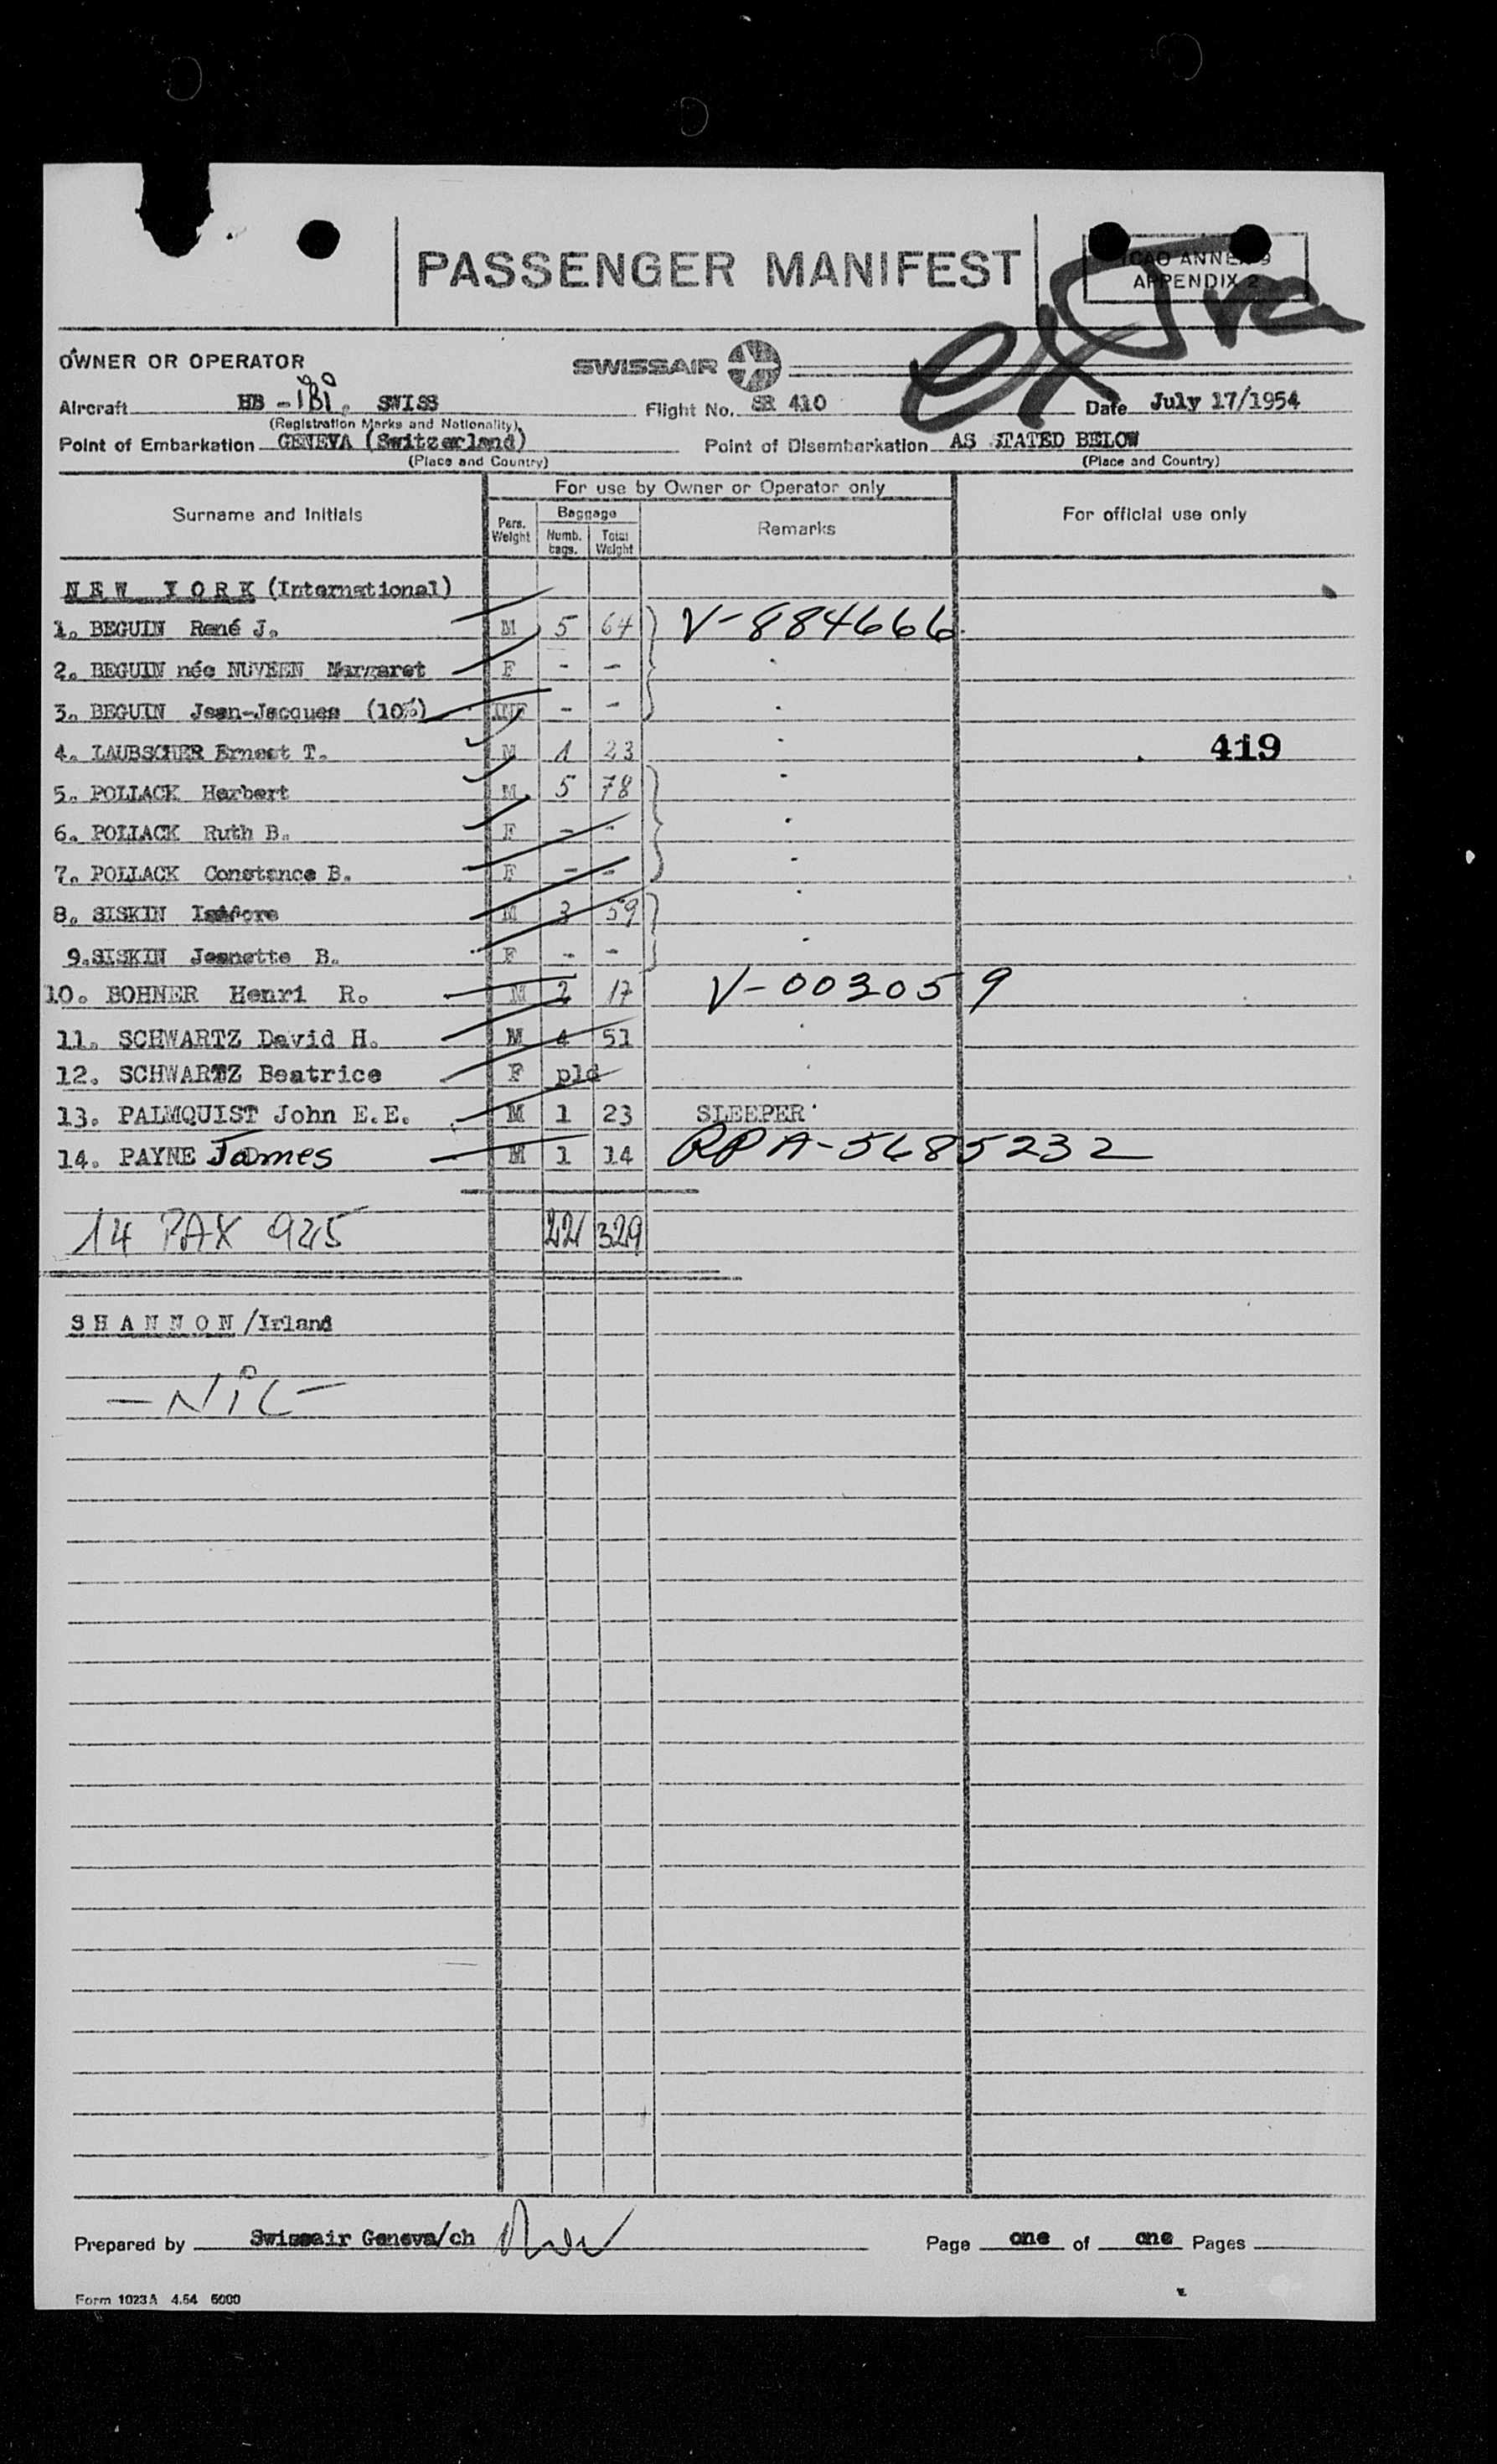 PASSENGER MANIFEST
ICAO ANNEX 9
APPENDIX 2
extra
OWNER OR OPERATOR SWISSAIR
Aircraft HB - IBI. SWISS Flight No. SR 410 Date July 17/1954
(Registration Marks and Nationality)
Point of Embarkation GENEVA (Switzerland) Point of Disembarkation AS STATED BELOW
(Place and Country) (Place and Country)
For use by Owner or Operator only
Surname and Initials Pers. Weight Baggage Numb. bags. Total Weight Remarks For official use only
NEW YORK (International)
1. BEGUIN René J. M 5 64 V-884666
2. BEGUIN née NUVEEN Margaret F - -
3. BEGUIN Jean-Jacques (10%) INF - -
4. LAUBSCHER Ernest T. M 1 23 419
5. POLLACK Herbert M 5 78
6. POLLACK Ruth B. F - -
7. POLLACK Constance B. F - -
8. SISKIN M 3 59
9. SISKIN Jeanette B. F - -
10. BOHNER Henri R. M 2 17 V-003059
11. SCHWARTZ David H. M 4 51
12. SCHWARTZ Beatrice F pld
13. PALMQUIST John E.E. M 1 23 SLEEPER
14. PAYNE James M 1 14 RPA-5685232
14 PAX 925 22 329
SHANNON/Irland
- NIL -
Prepared by Swissair Geneva/ch Page one of one Pages
Form 1023A 4.54 5000